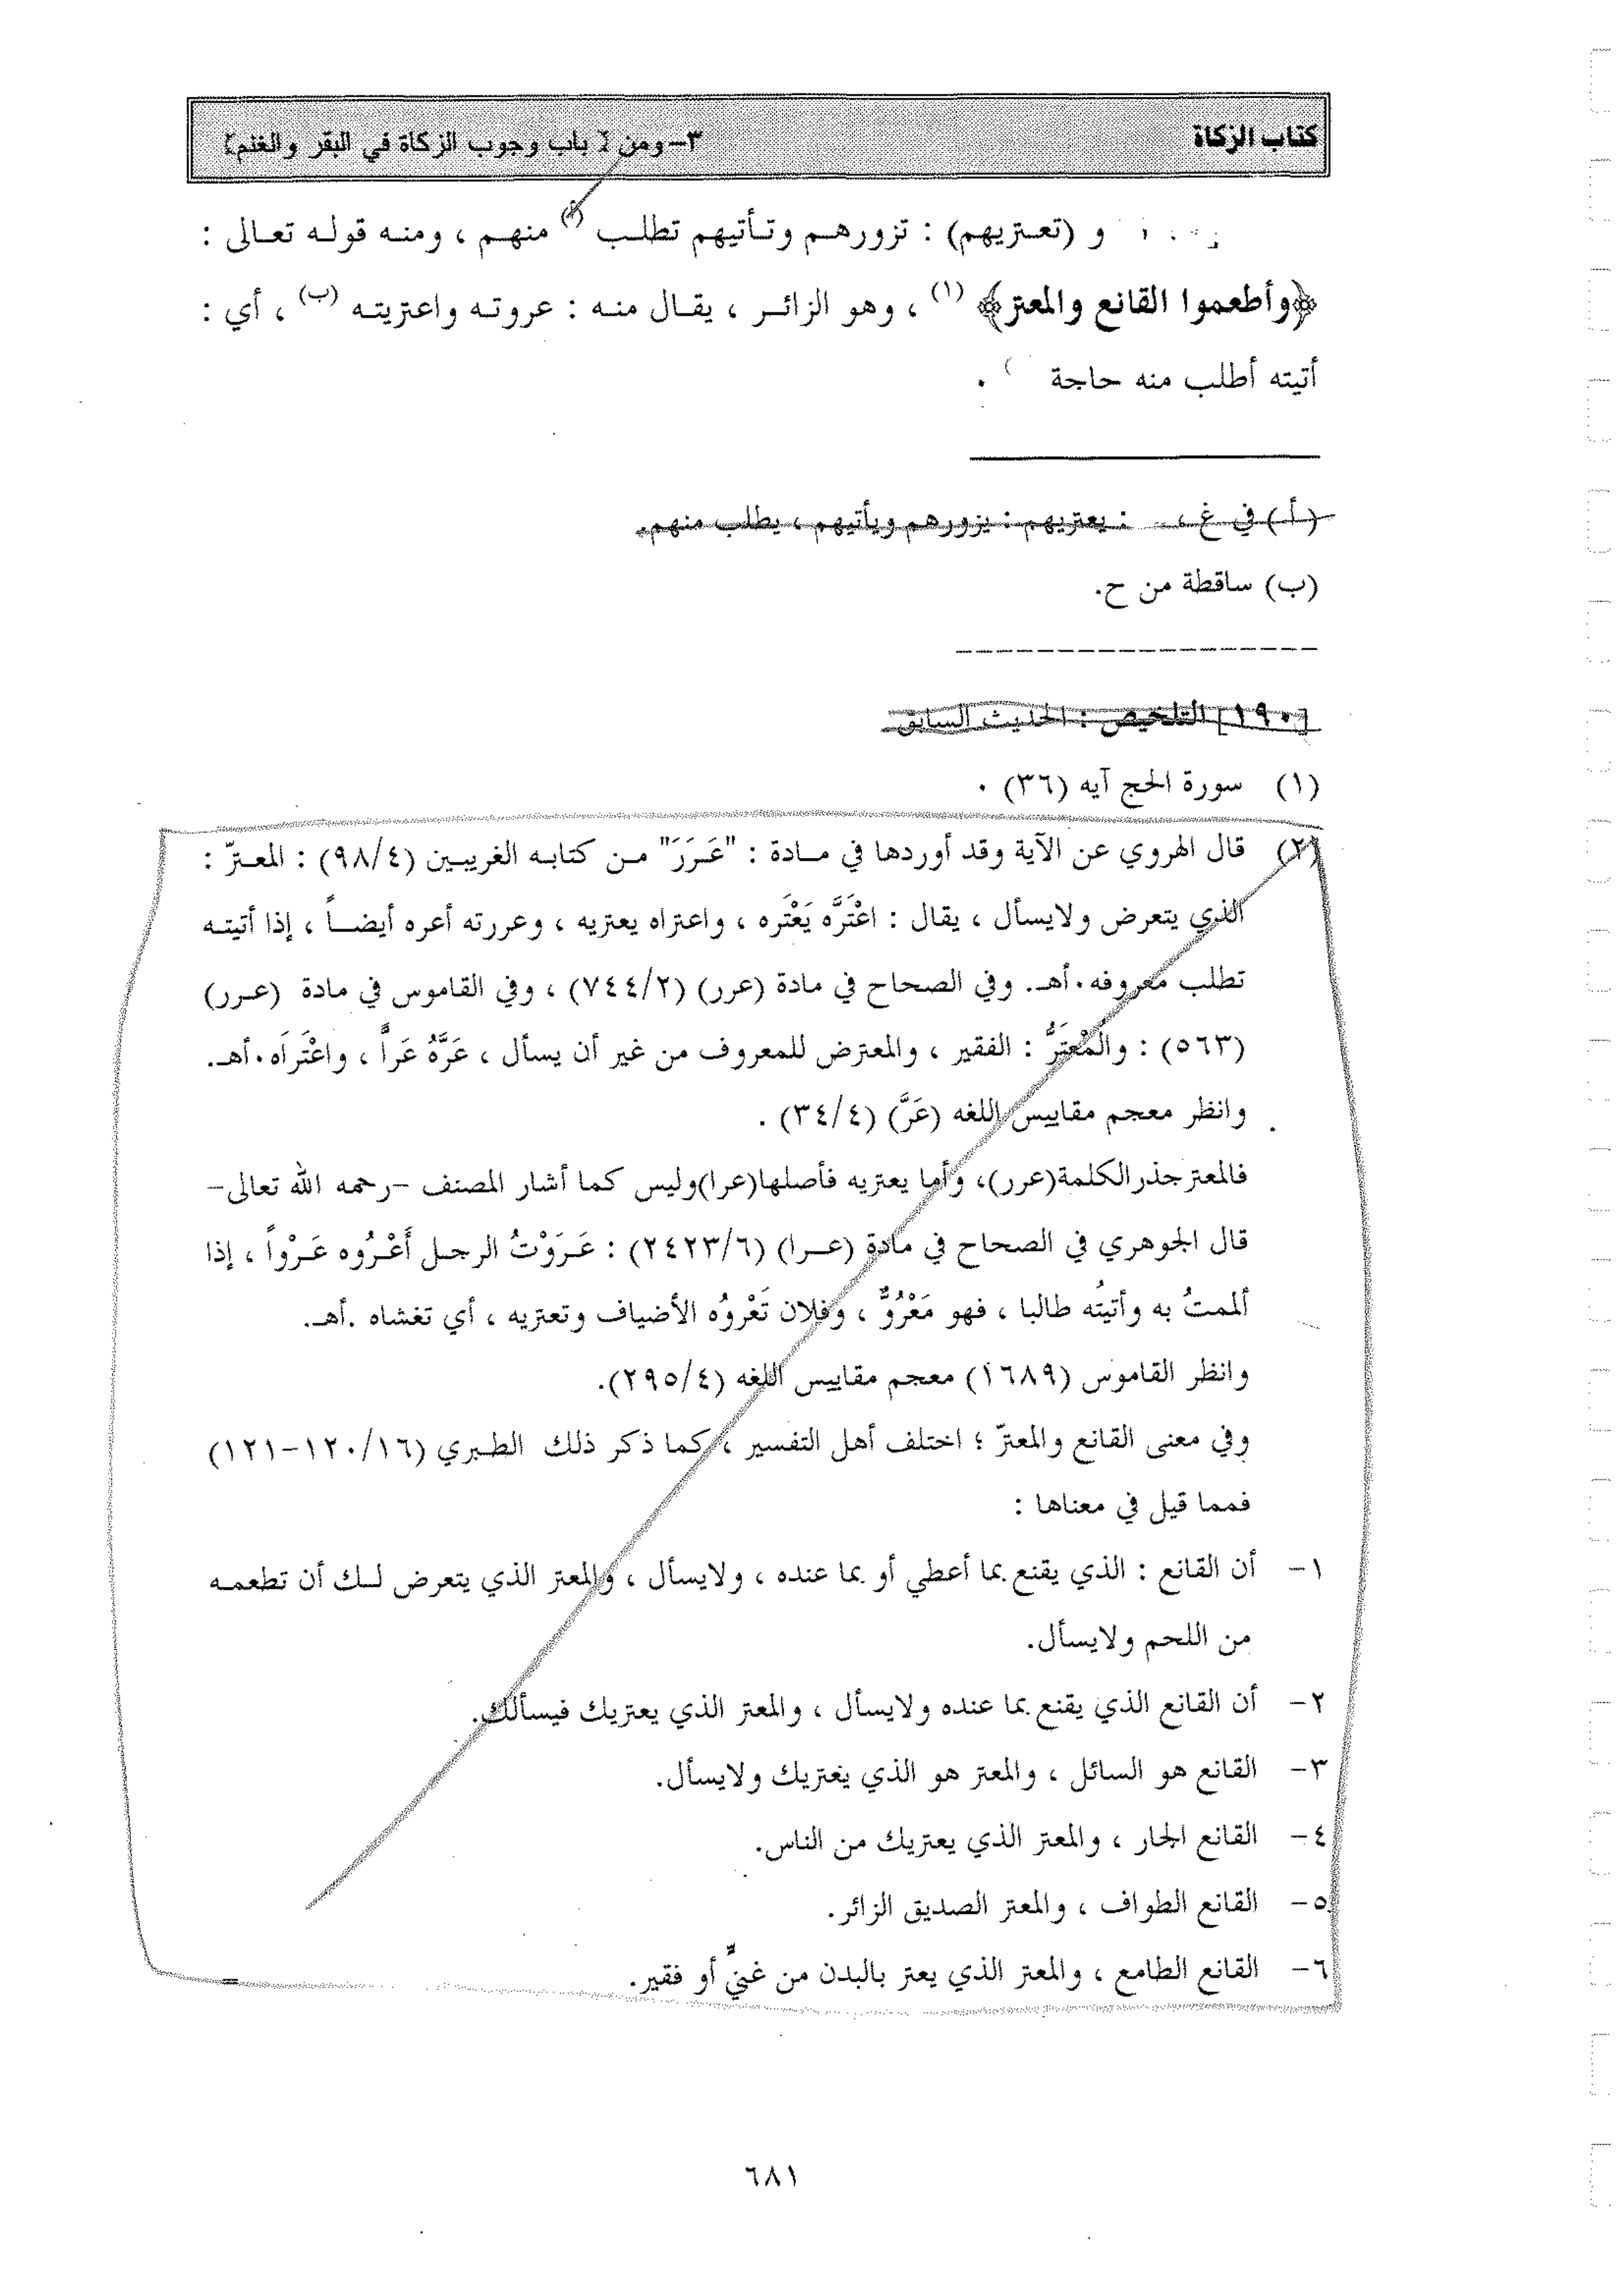 كتاب الزكاة
٣- ومن [ باب وجوب الزكاة في البقر والغنم]
و (تعتريهم) : تزورهم وتأتيهم تطلب (أ) منهم ، ومنه قوله تعالى :
﴿وأطعموا القانع والمعتر﴾ (١) ، وهو الزائر ، يقال منه : عروته واعتريته (ب) ، أي :
أتيته أطلب منه حاجة .
(أ) في غ ، : يعتريهم : يزورهم ويأتيهم ، يطلب منهم.
(ب) ساقطة من ح.
[١٩٠] التلخيص : الحديث السابق.
(١) سورة الحج آيه (٣٦) .
(٢) قال الهروي عن الآية وقد أوردها في مادة : "عَرَرَ" من كتابه الغريبين (٩٨/٤) : المعترّ :
الذي يتعرض ولايسأل ، يقال : اعْتَرَّه يَعْتَره ، واعتراه يعتريه ، وعررته أعره أيضاً ، إذا أتيته
تطلب معروفه.أهـ. وفي الصحاح في مادة (عرر) (٧٤٤/٢) ، وفي القاموس في مادة (عرر)
(٥٦٣) : والمُعْتَرُّ : الفقير ، والمعترض للمعروف من غير أن يسأل ، عَرَّهُ عَراًّ ، واعْتَراَه.أهـ.
وانظر معجم مقاييس اللغه (عَرَّ) (٣٤/٤) .
فالمعتر جذر الكلمة(عرر)، وأما يعتريه فأصلها(عرا)وليس كما أشار المصنف -رحمه الله تعالى-
قال الجوهري في الصحاح في مادة (عرا) (٢٤٢٣/٦) : عَرَوْتُ الرجل أَعْرُوه عَرْواً ، إذا
ألممتُ به وأتيتُه طالبا ، فهو مَعْرُوٌّ ، وفلان تَعْروُه الأضياف وتعتريه ، أي تغشاه .أهـ.
وانظر القاموس (١٦٨٩) معجم مقاييس اللغه (٢٩٥/٤).
وفي معنى القانع والمعترّ ؛ اختلف أهل التفسير ، كما ذكر ذلك الطبري (١٢٠/١٦-١٢١)
فمما قيل في معناها :
١- أن القانع : الذي يقنع بما أعطي أو بما عنده ، ولايسأل ، والمعتر الذي يتعرض لك أن تطعمه
من اللحم ولايسأل.
٢- أن القانع الذي يقنع بما عنده ولايسأل ، والمعتر الذي يعتريك فيسألك.
٣- القانع هو السائل ، والمعتر هو الذي يعتريك ولايسأل.
٤- القانع الجار ، والمعتر الذي يعتريك من الناس.
٥- القانع الطواف ، والمعتر الصديق الزائر.
٦- القانع الطامع ، والمعتر الذي يعتر بالبدن من غنيٍّ أو فقير.
=
٦٨١